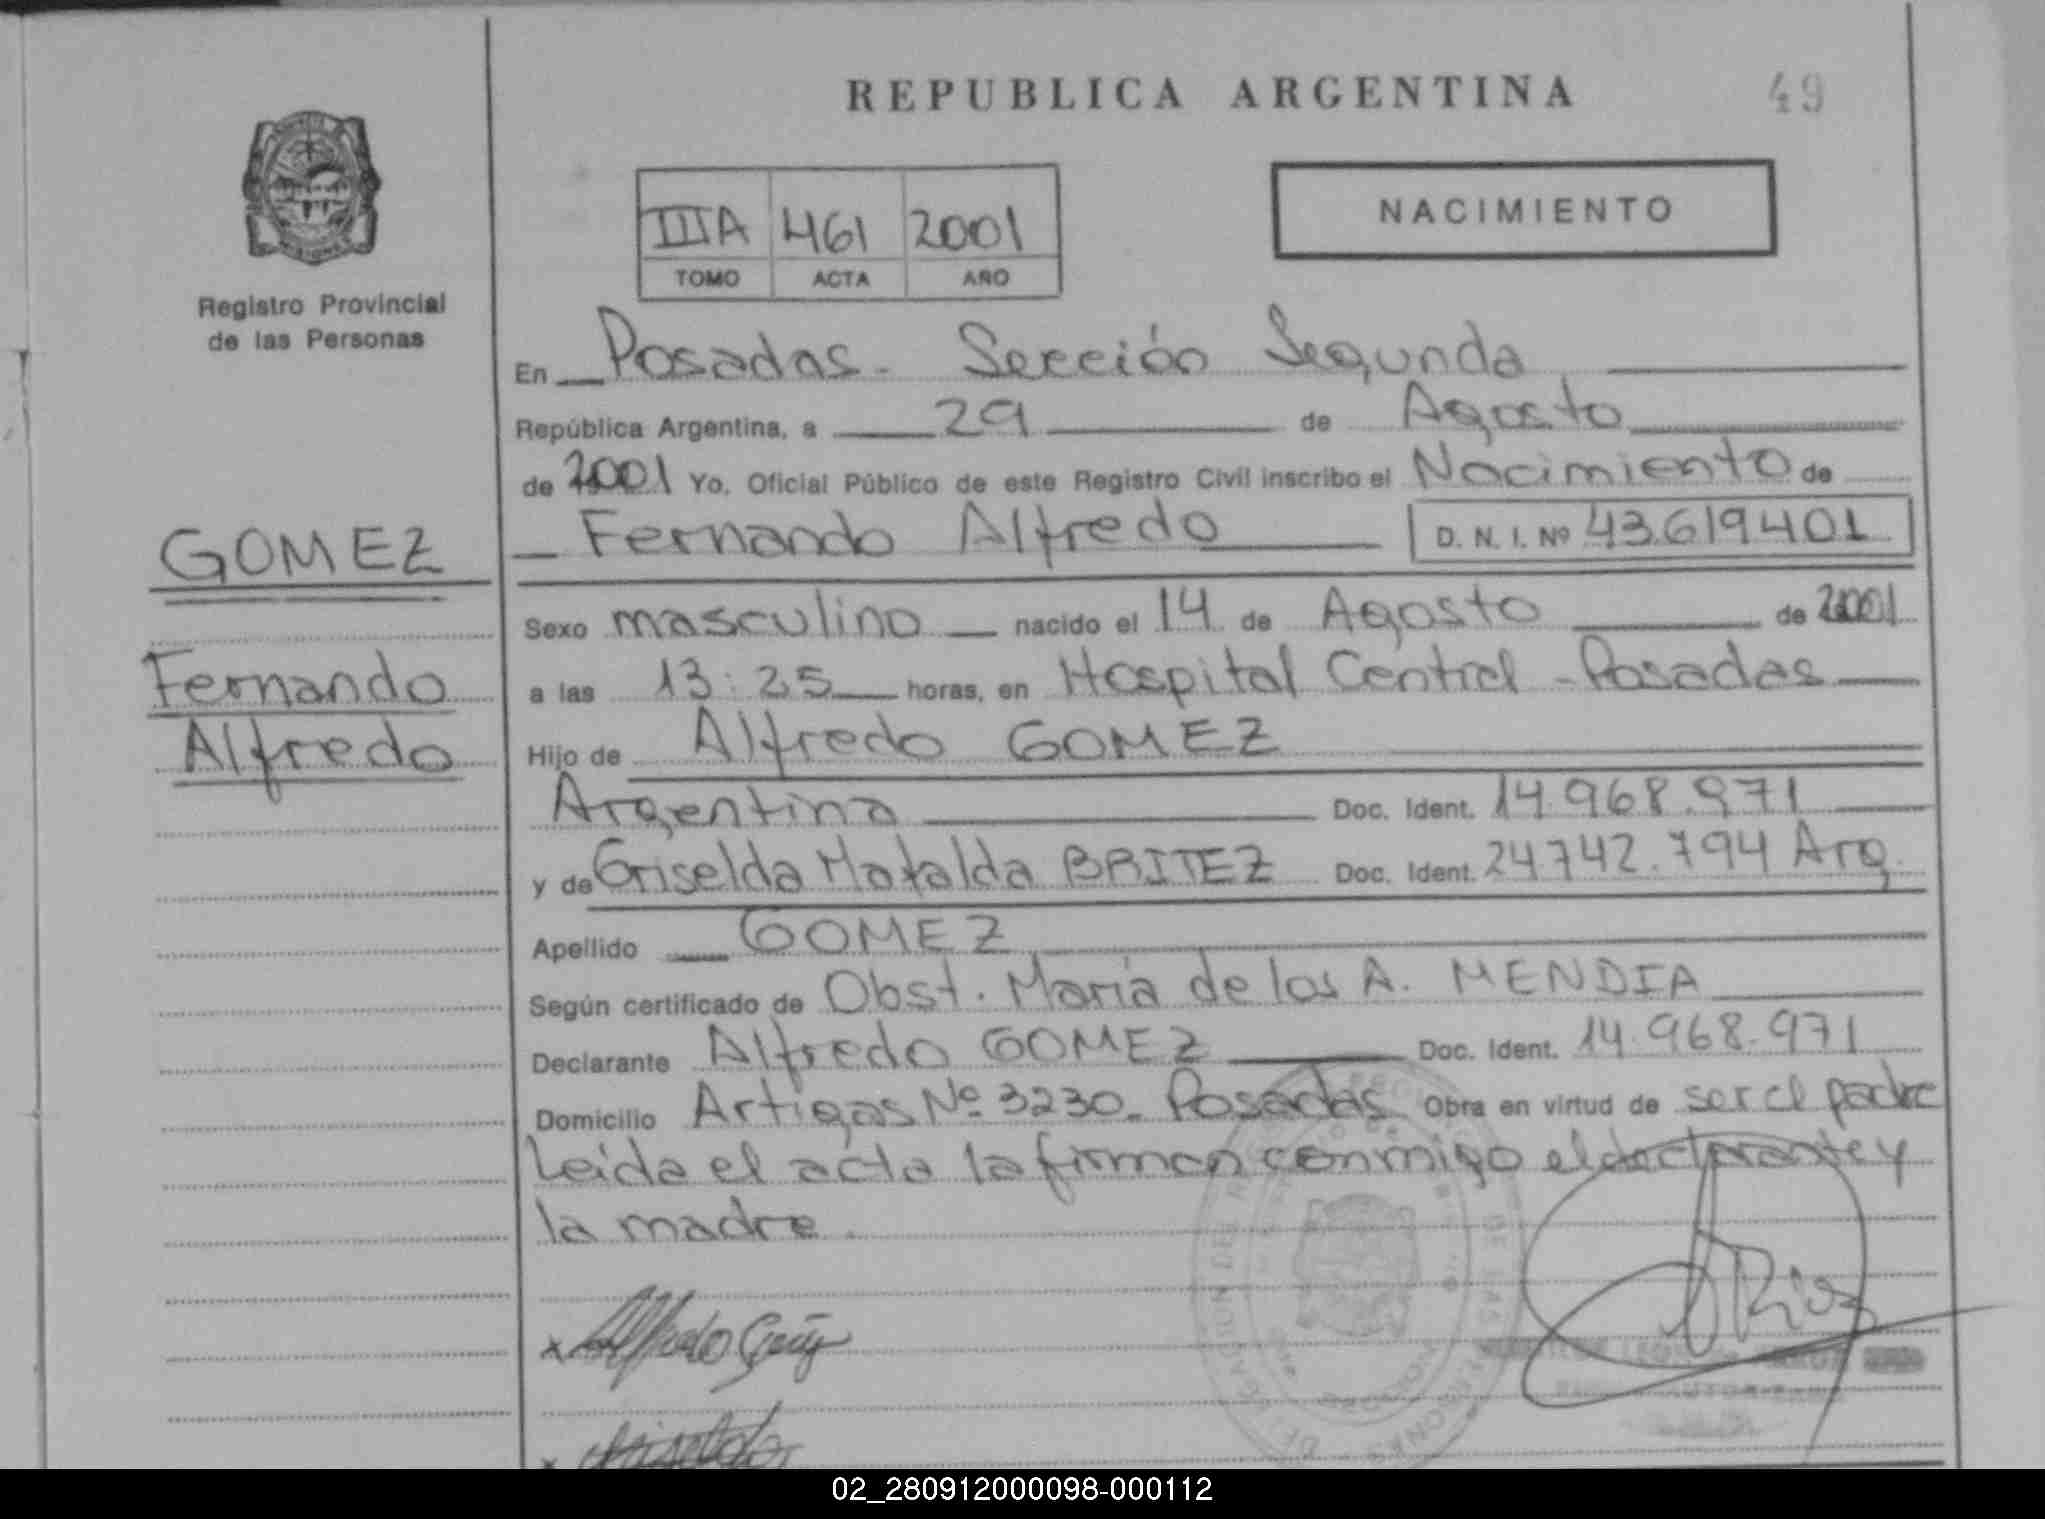 REPUBLICA ARGENTINA
49
IIIA 461 2001
TOMO ACTA AÑO
NACIMIENTO
Registro Provincial
de las Personas
En Posadas - Sección Segunda
República Argentina, a 29 de Agosto
de 2001 Yo, Oficial Público de este Registro Civil inscribo el Nacimiento de
Fernando Alfredo D. N. I. Nº 43.619.401
GOMEZ
Fernando
Alfredo
Sexo masculino nacido el 14 de Agosto de 2001
a las 13:25 horas, en Hospital Central - Posadas
Hijo de Alfredo GOMEZ
Argentina Doc. Ident. 14.968.971
y de Griselda Mafalda BRITEZ Doc. Ident. 24.742.794 Arg.
Apellido GOMEZ
Según certificado de Obst. María de los A. MENDIA
Declarante Alfredo GOMEZ Doc. Ident. 14.968.971
Domicilio Artigas Nº 3230 - Posadas Obra en virtud de ser el padre
Leida el acta la firman conmigo el declarante y
la madre.
x Alfredo
x
02_280912000098-000112